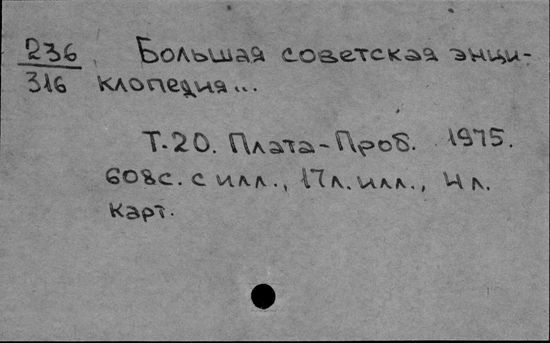 236 Большая советская энци-
316 клопедия...
Т.20. Плата-Проб. 1975.
608с. с илл., 17л. илл., 4л.
карт.